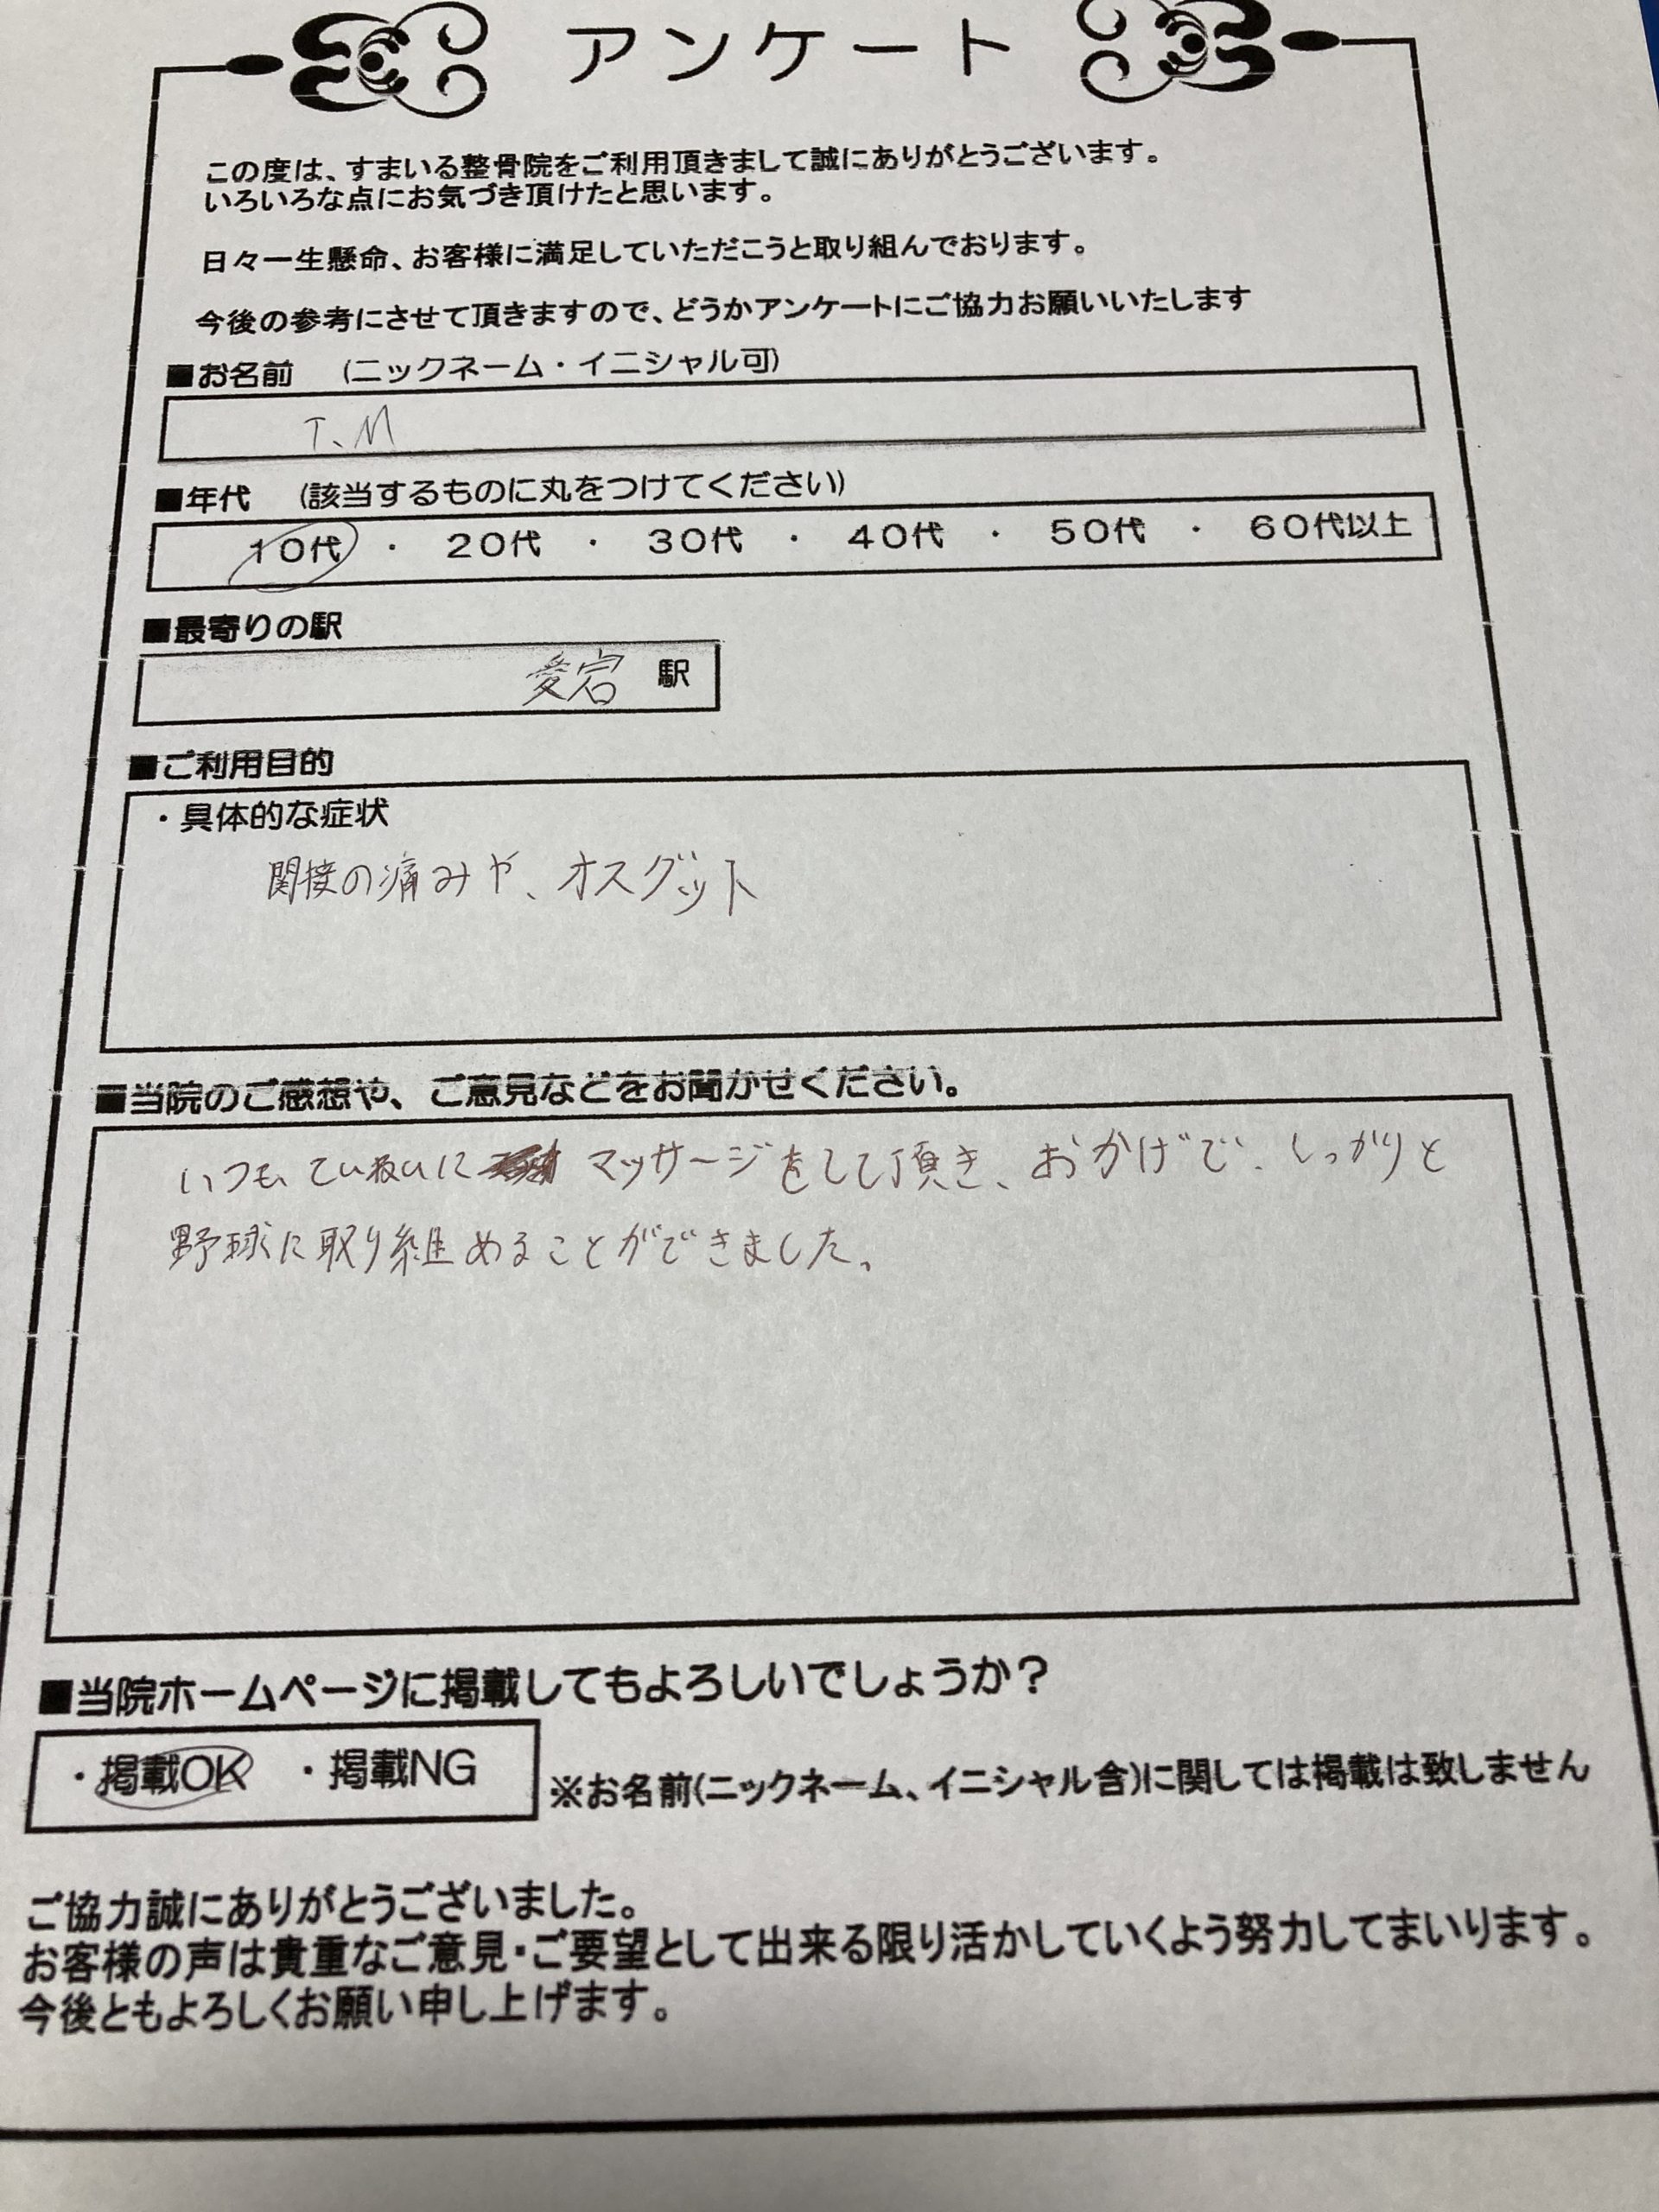 アンケート
この度は、すまいる整骨院をご利用頂きまして誠にありがとうございます。
いろいろな点にお気づき頂けたと思います。
日々一生懸命、お客様に満足していただこうと取り組んでおります。
今後の参考にさせて頂きますので、どうかアンケートにご協力お願いいたします
■お名前　(ニックネーム・イニシャル可)
T.M
■年代　(該当するものに丸をつけてください)
10代　・　20代　・　30代　・　40代　・　50代　・　60代以上
■最寄りの駅
愛宕 駅
■ご利用目的
・具体的な症状
関接の痛みや、オスグット
■当院のご感想や、ご意見などをお聞かせください。
いつも、ていねいに マッサージをして頂き、おかげで、しっかりと
野球に取り組めることができました。
■当院ホームページに掲載してもよろしいでしょうか？
・掲載OK　・掲載NG　※お名前(ニックネーム、イニシャル含)に関しては掲載は致しません
ご協力誠にありがとうございました。
お客様の声は貴重なご意見・ご要望として出来る限り活かしていくよう努力してまいります。
今後ともよろしくお願い申し上げます。